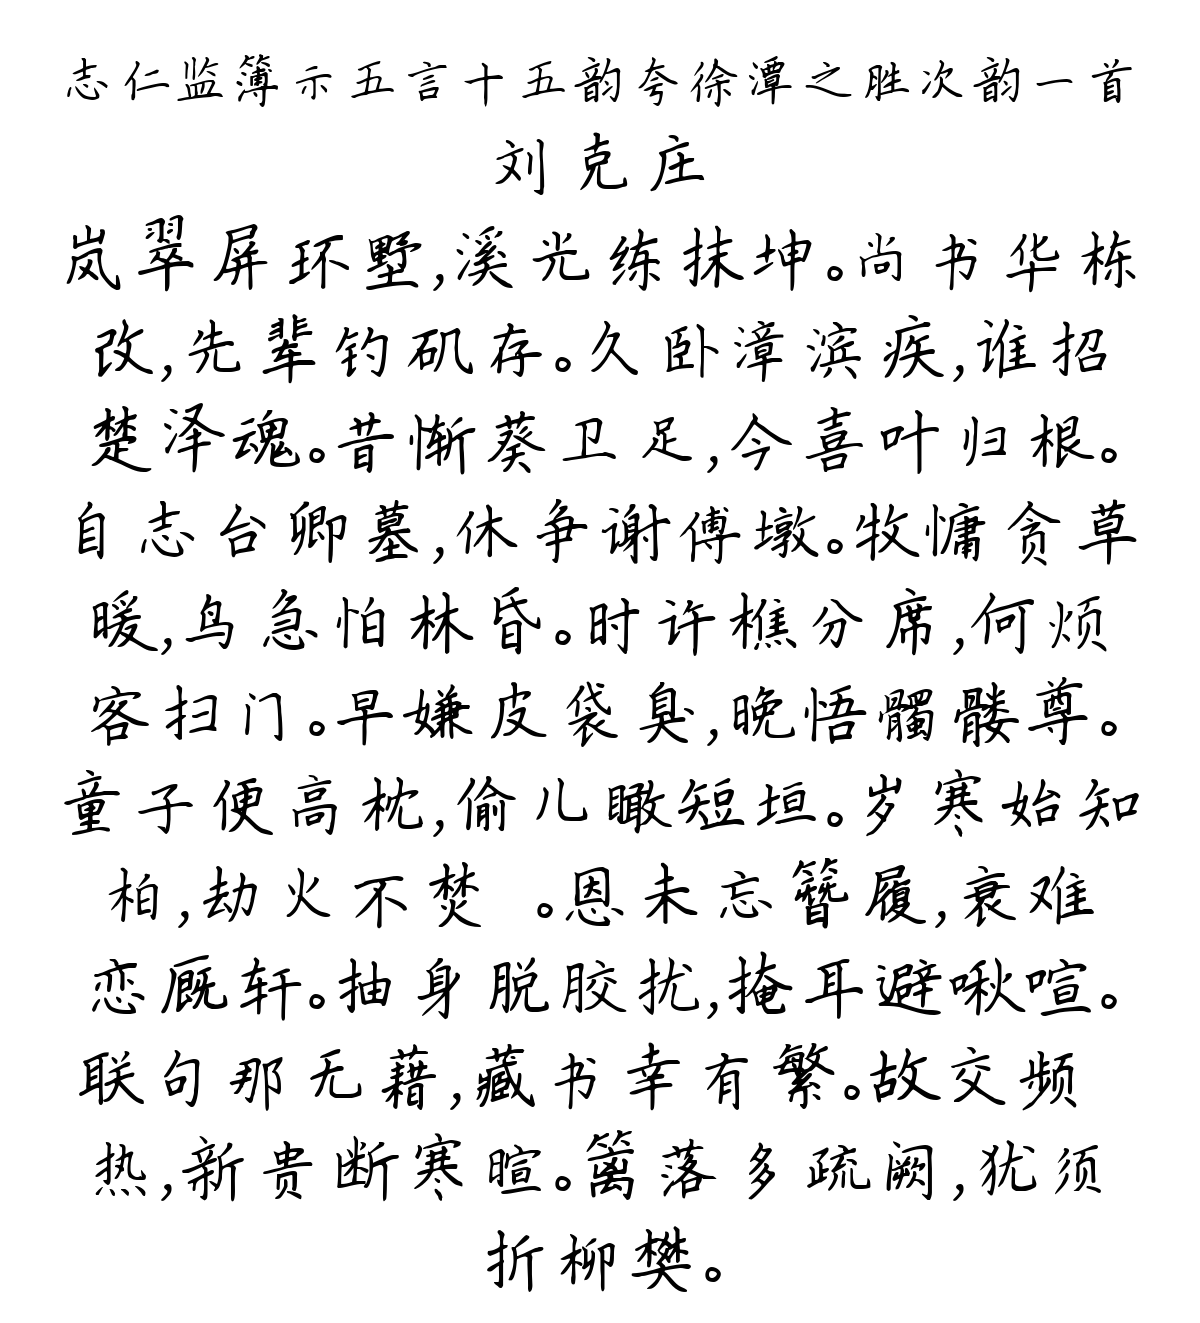 志仁监簿示五言十五韵夸徐潭之胜次韵一首
刘克庄
岚翠屏环墅,溪光练抹坤。尚书华栋
改,先辈钓矶存。久卧漳滨疾,谁招
楚泽魂。昔惭葵卫足,今喜叶归根。
自志台卿墓,休争谢傅墩。牧慵贪草
暖,鸟急怕林昏。时许樵分席,何烦
客扫门。早嫌皮袋臭,晚悟髑髅尊。
童子便高枕,偷儿瞰短垣。岁寒始知
柏,劫火不焚 。恩未忘簪履,衰难
恋厩轩。抽身脱胶扰,掩耳避啾喧。
联句那无藉,藏书幸有繁。故交频
热,新贵断寒暄。篱落多疏阙,犹须
折柳樊。